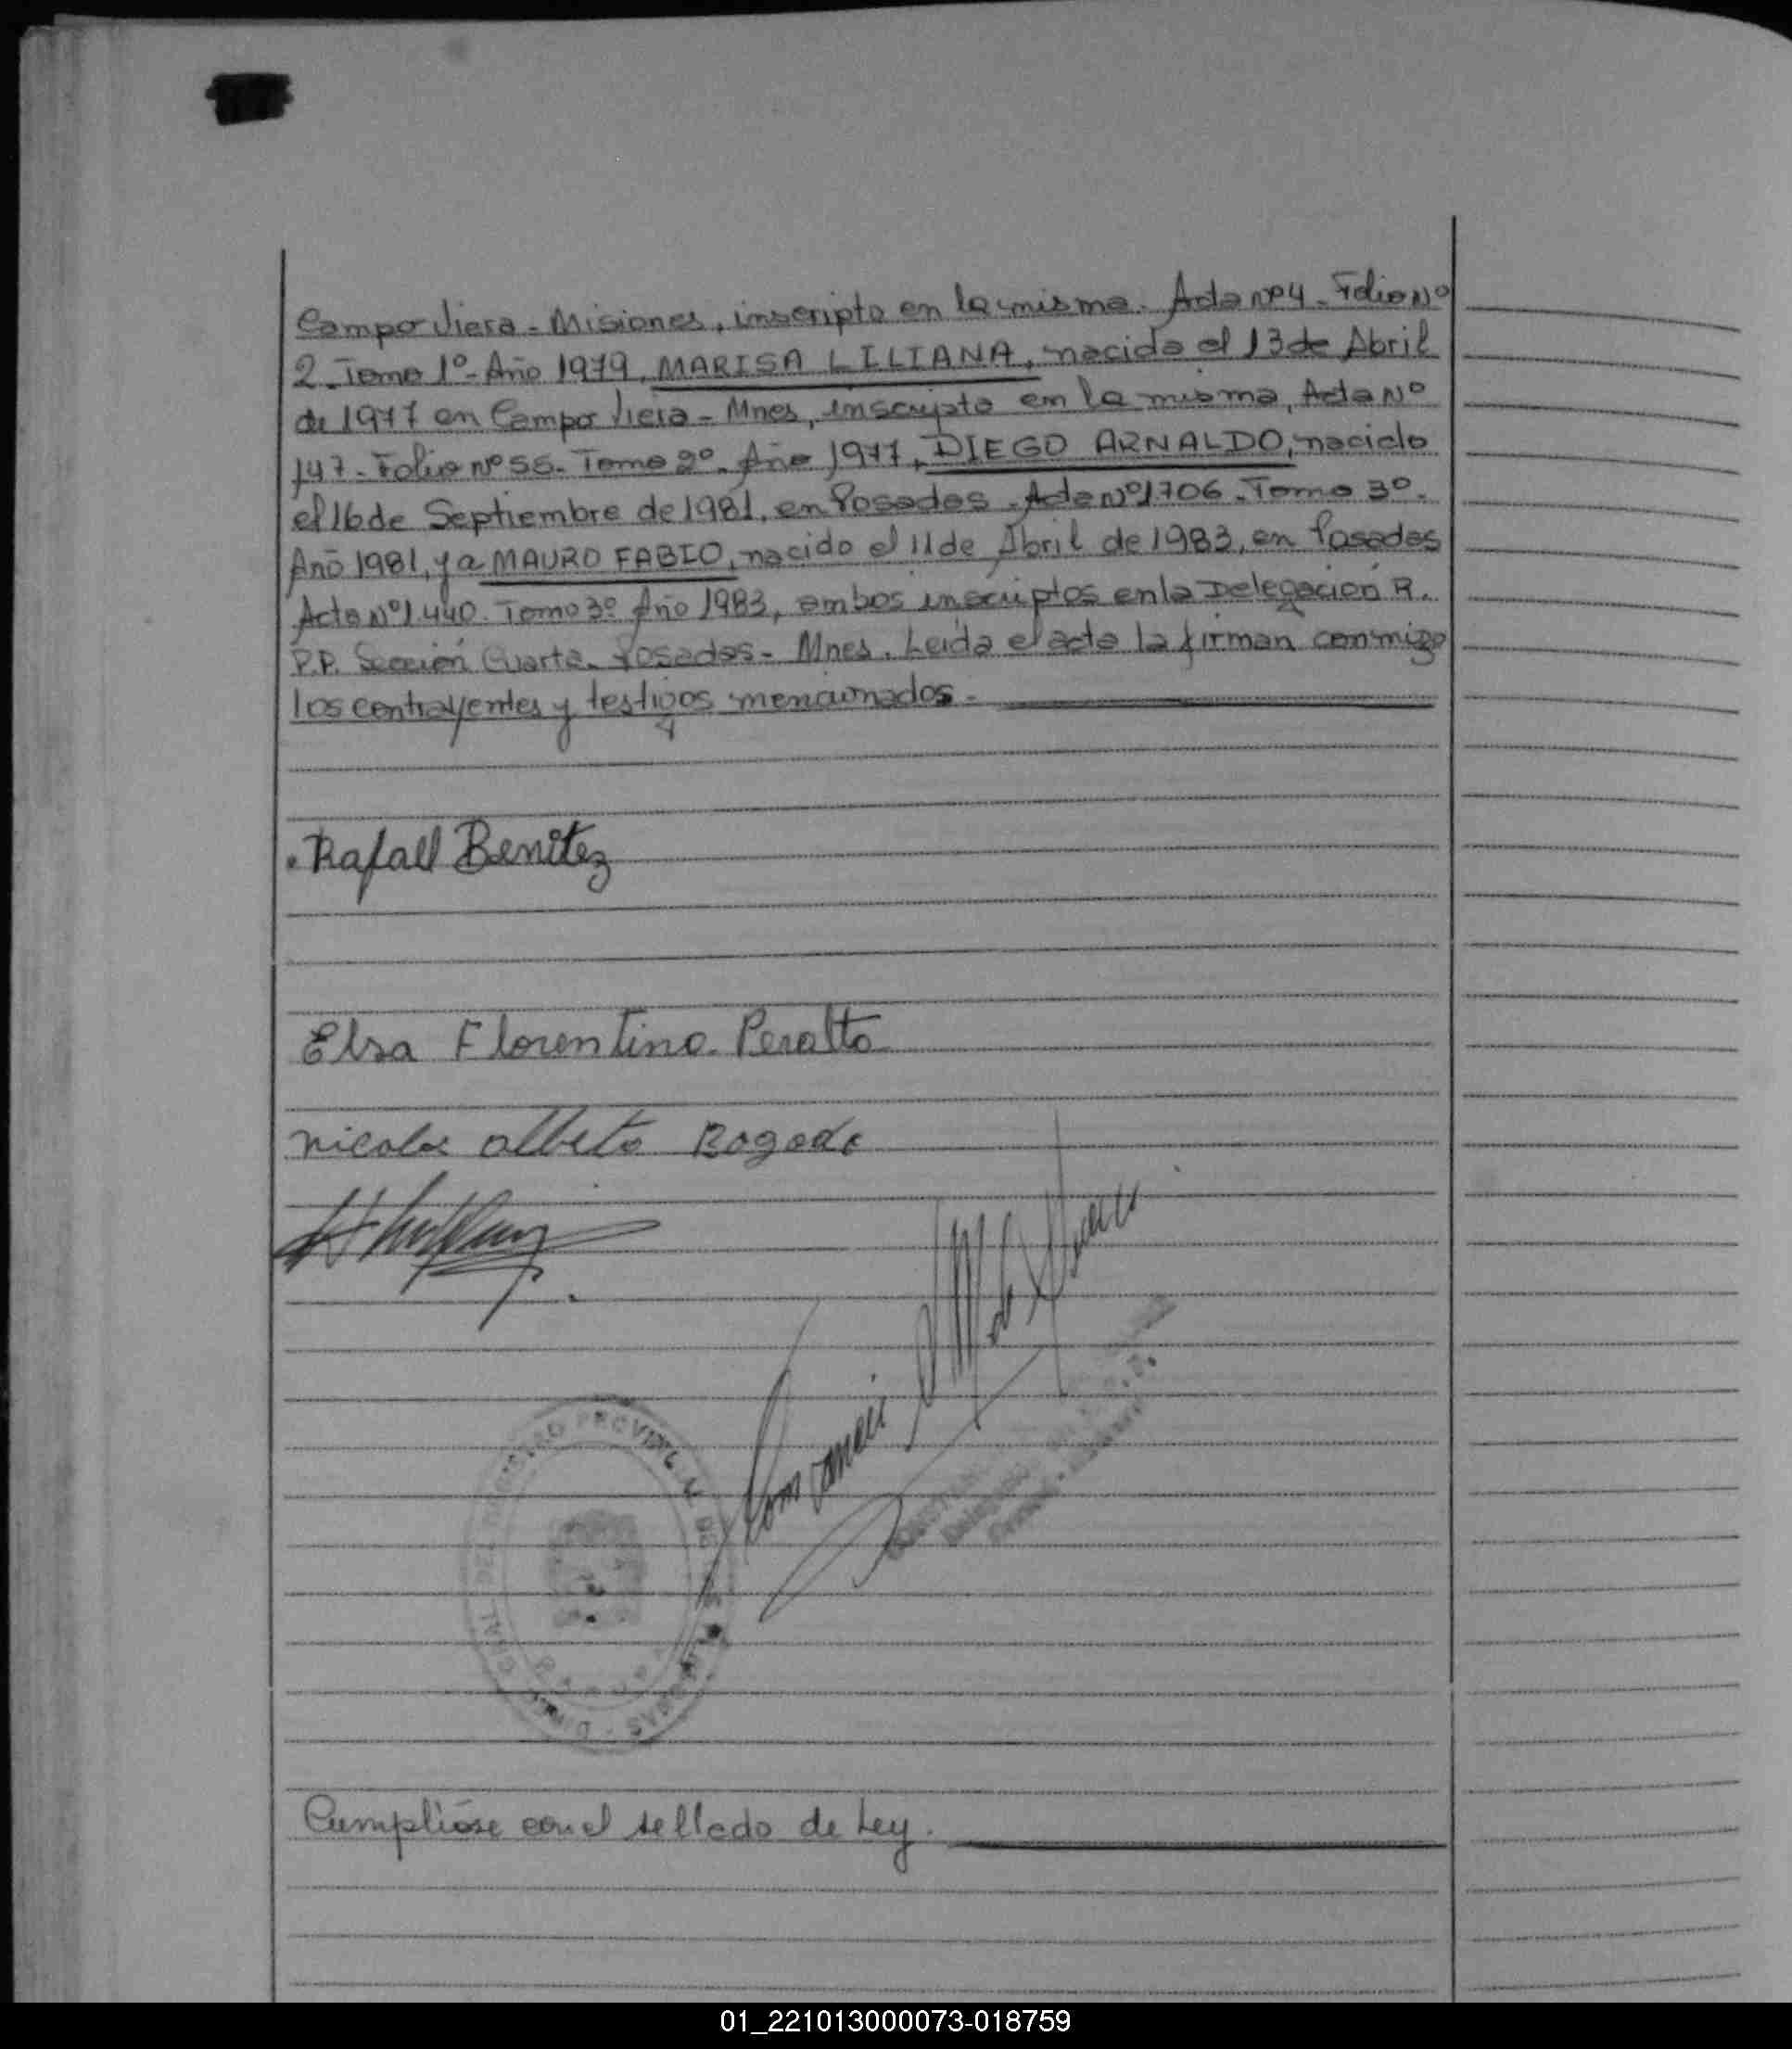 Campo Viera - Misiones, inscripta en la misma. Acta nº 4 - Folio Nº
2 - Tomo 1º - Año 1979, MARISA LILIANA, nacida el 13 de Abril
de 1977 en Campo Viera - Mnes, inscripta en la misma, Acta Nº
147 - Folio nº 55 - Tomo 2º. Año 1977, DIEGO ARNALDO, nacido
el 16 de Septiembre de 1981, en Posadas - Acta Nº 1706 - Tomo 3º.
Año 1981, y a MAURO FABIO, nacido el 11 de Abril de 1983, en Posadas
Acta Nº 1.440. Tomo 3º Año 1983, ambos inscriptos en la Delegación R.
P.P. Sección Cuarta - Posadas - Mnes. Leida el acta la firman conmigo
los contrayentes y testigos mencionados -
Rafall Benitez
Elsa Florentina Peralta
nicolas alberto Bogado
REGISTRO PROVINCIAL DE LAS PERSONAS
Cumplióse con el sellado de Ley.
01_221013000073-018759